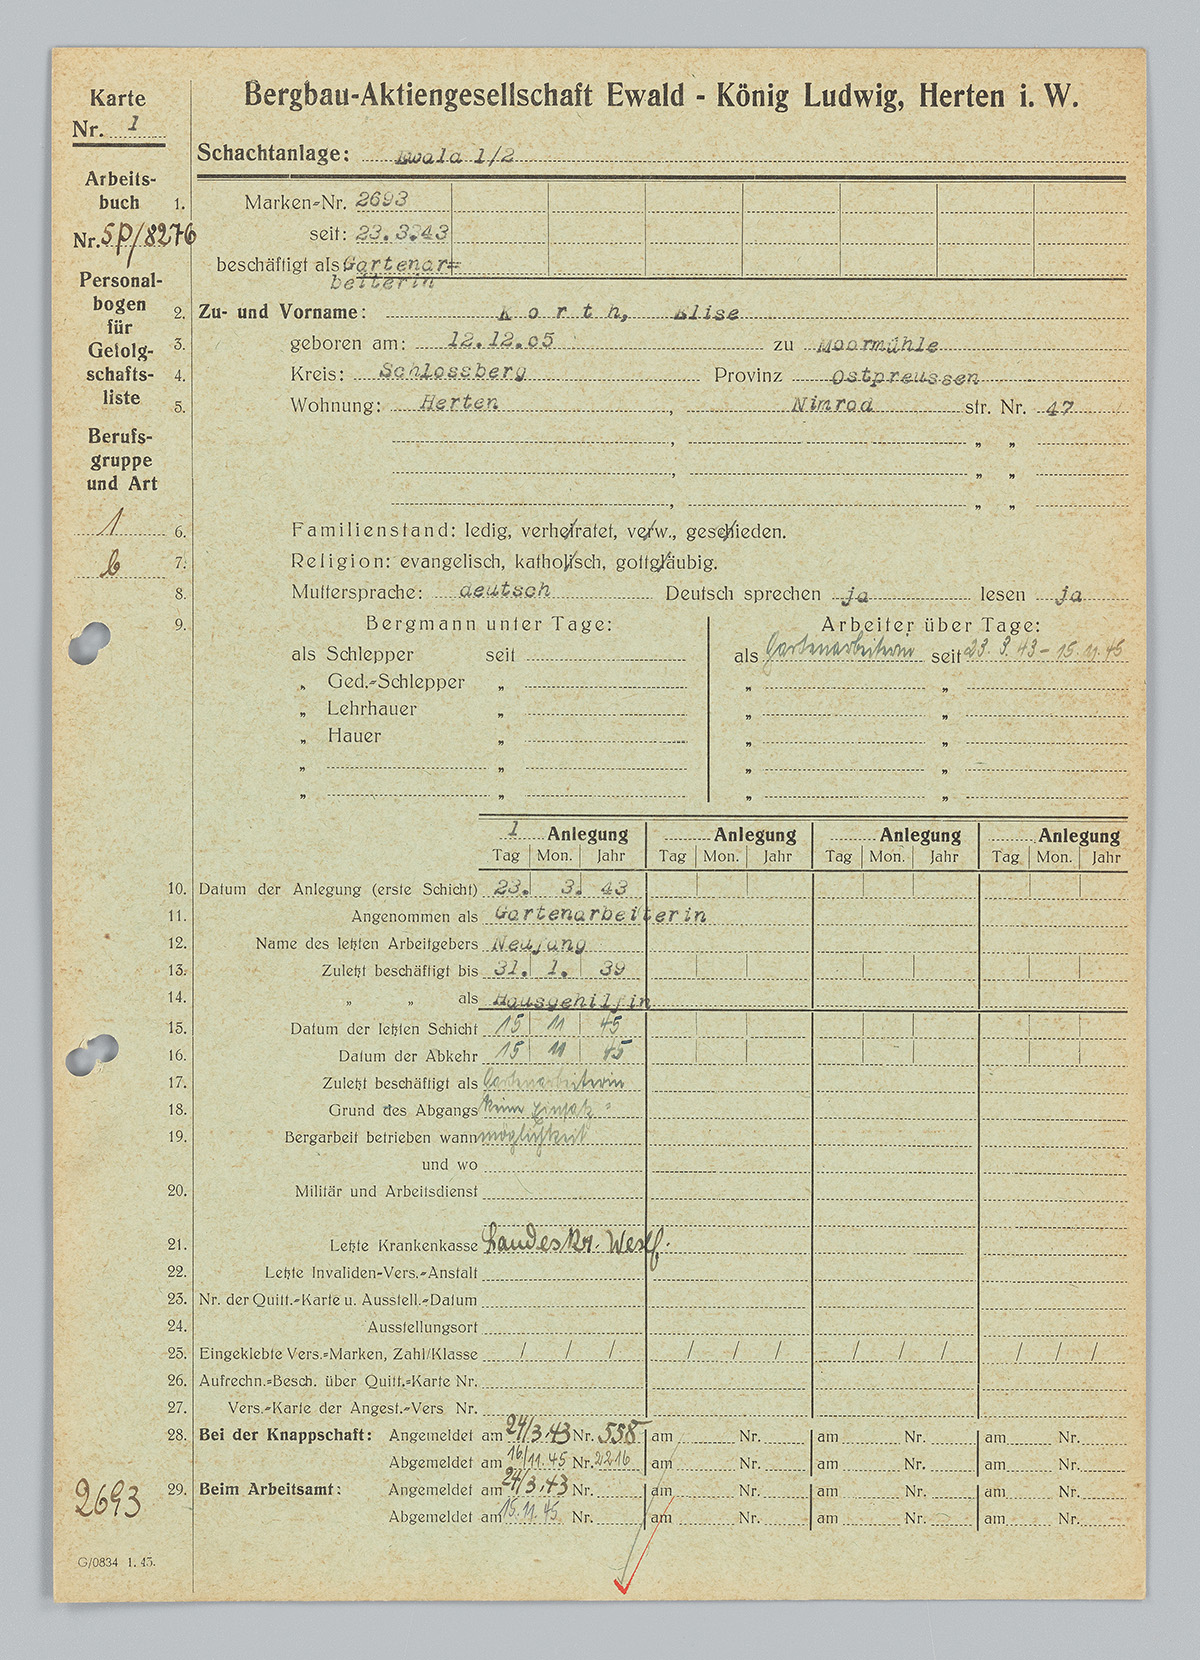 Bergbau-Aktiengesellschaft Ewald - König Ludwig, Herten i. W.
Karte
Nr. 1
Schachtanlage: Ewald 1/2
Arbeits-
buch
Nr. 5P/8276
Personal-
bogen
für
Gefolg-
schafts-
liste
Berufs-
gruppe
und Art
1
b
1. Marken-Nr. 2693
seit: 23.3.43
beschäftigt als Gartenar=
beiterin
2. Zu- und Vorname: Korth, Elise
3. geboren am: 12.12.05 zu Moormühle
4. Kreis: Schlossberg Provinz Ostpreussen
5. Wohnung: Herten, Nimrod str. Nr. 47
, „ „
, „ „
, „ „
6. Familienstand: ledig, verheiratet, verw., geschieden.
7. Religion: evangelisch, katholisch, gottgläubig.
8. Muttersprache: deutsch Deutsch sprechen ja lesen ja
9. Bergmann unter Tage: Arbeiter über Tage:
als Schlepper seit als Gartenarbeiterin seit 23.3.43 - 15.11.45
„ Ged.-Schlepper „ „ „
„ Lehrhauer „ „ „
„ Hauer „ „ „
„ „ „ „
„ „ „ „
1 Anlegung Anlegung Anlegung Anlegung
Tag Mon. Jahr Tag Mon. Jahr Tag Mon. Jahr Tag Mon. Jahr
10. Datum der Anlegung (erste Schicht) 23. 3. 43
11. Angenommen als Gartenarbeiterin
12. Name des letzten Arbeitgebers Neujung
13. Zuletzt beschäftigt bis 31. 1. 39
14. „ „ als Hausgehilfin
15. Datum der letzten Schicht 15 11 45
16. Datum der Abkehr 15 11 45
17. Zuletzt beschäftigt als Gartenarbeiterin
18. Grund des Abgangs keine Einsatz=
19. Bergarbeit betrieben wann möglichkeit
und wo
20. Militär und Arbeitsdienst
21. Letzte Krankenkasse Landeskr. Westf.
22. Letzte Invaliden-Vers.-Anstalt
23. Nr. der Quitt.-Karte u. Ausstell.-Datum
24. Ausstellungsort
25. Eingeklebte Vers.-Marken, Zahl/Klasse / / / / / / / / / / / /
26. Aufrechn.-Besch. über Quitt.-Karte Nr.
27. Vers.-Karte der Angest.-Vers Nr.
28. Bei der Knappschaft: Angemeldet am 24/3.43 Nr. 558 am Nr. am Nr. am Nr.
Abgemeldet am 16/11.45 Nr. 2216 am Nr. am Nr. am Nr.
29. Beim Arbeitsamt: Angemeldet am 24/3.43 Nr. am Nr. am Nr. am Nr.
Abgemeldet am 15.11.45 Nr. am Nr. am Nr. am Nr.
2693
G/0834 1.43.